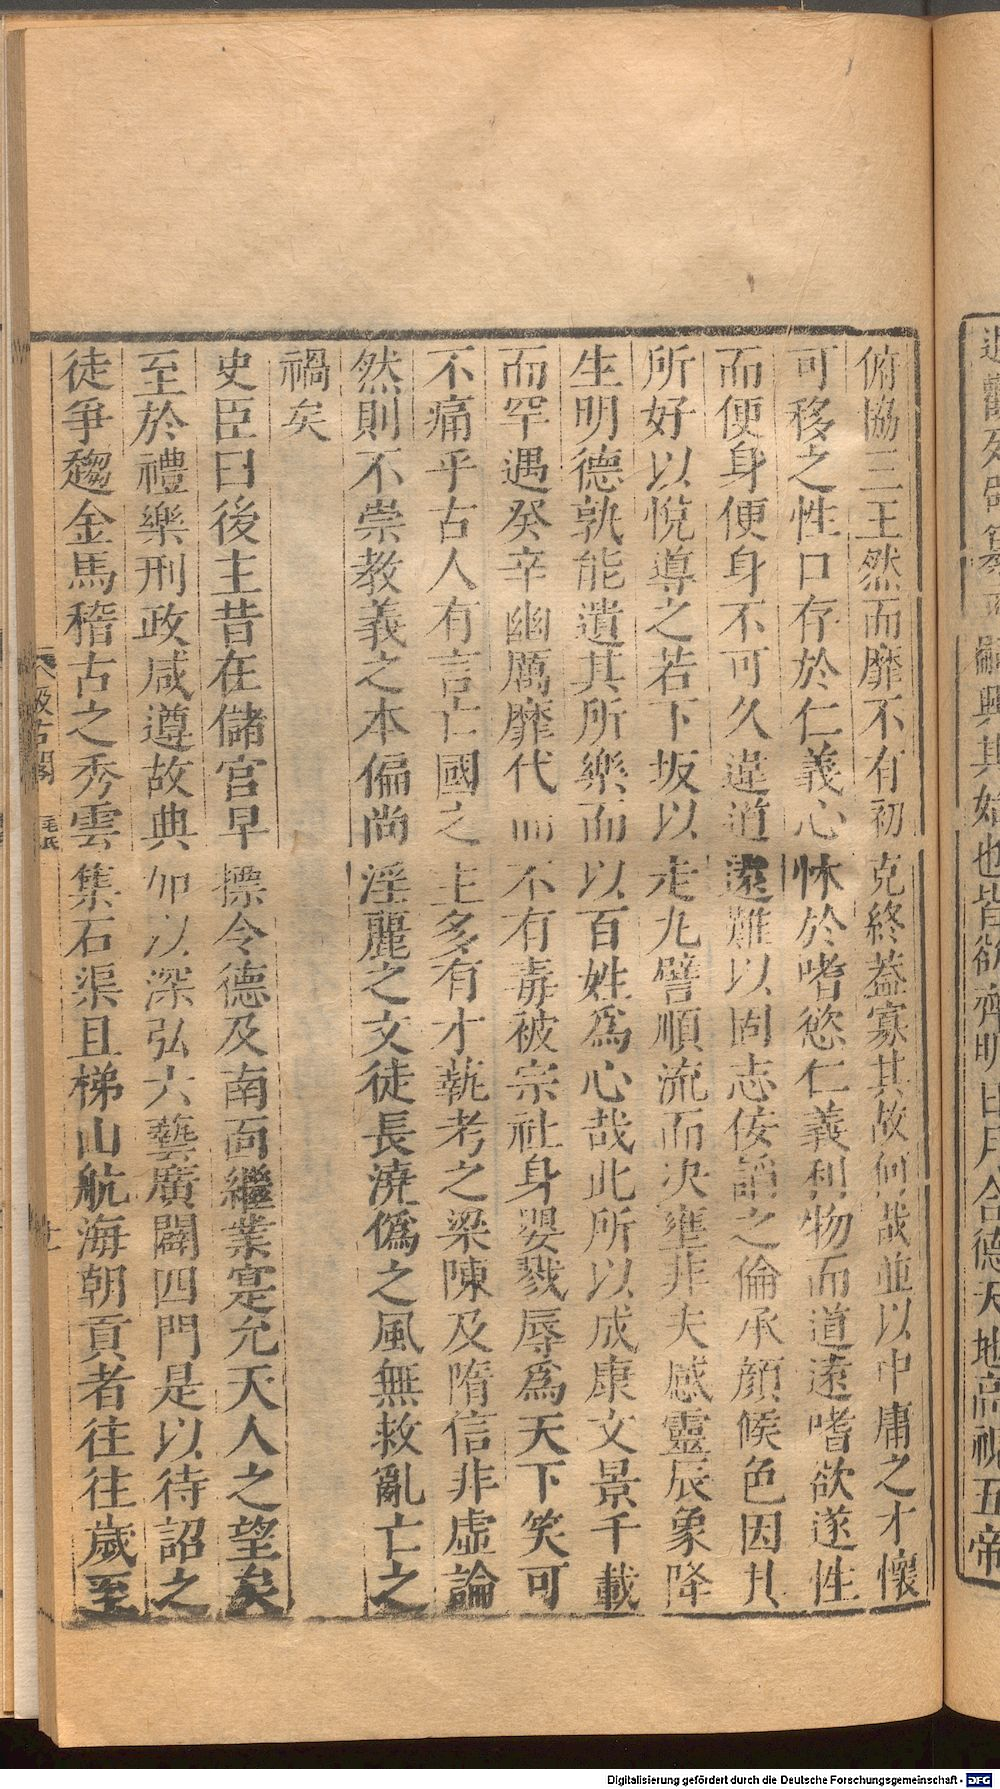 俯協三王然而靡不有初克終蓋寡其故何哉並以中庸之才懷
可移之性口存於仁義心怵於嗜慾仁義利物而道遠嗜欲遂性
而便身便身不可久違道遠難以固志佞諂之倫承顔候色因其
所好以悅導之若下坂以走丸譬順流而決壅非夫感靈辰象降
生明德孰能遺其所樂而以百姓爲心哉此所以成康文景千載
而罕遇癸辛幽厲靡代而不有毒被宗社身嬰戮辱爲天下笑可
不痛乎古人有言亡國之主多有才藝考之梁陳及隋信非虛論
然則不崇教義之本偏尚淫麗之文徒長澆僞之風無救亂亡之
禍矣
史臣曰後主昔在儲宮早摽令德及南面繼業寔允天人之望矣
至於禮樂刑政咸遵故典加以深弘六藝廣闢四門是以待詔之
徒爭趨金馬稽古之秀雲集石渠且梯山航海朝貢者往往歲至
汲古閣
毛氏
Digitalisierung gefördert durch die Deutsche Forschungsgemeinschaft - DFG